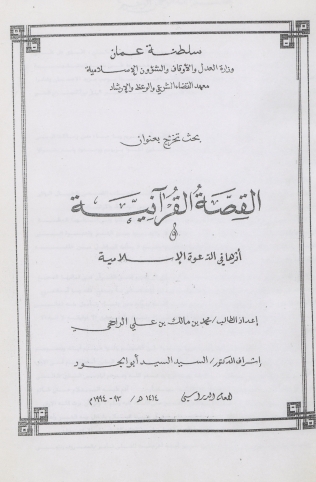 سلطنة عمان
وزارة العدل والأوقاف والشؤون الإسلامية
معهد القضاء الشرعي والوعظ والإرشاد
بحث تخرج بعنوان
القصة القرآنية
و
أثرها في الدعوة الإسلامية
إعداد الطالب / محمد بن مالك بن علي الراجحي
إشراف الدكتور / السيد السيد أبو الجود
١٤١٤ هـ / ٩٣ - ١٩٩٤م